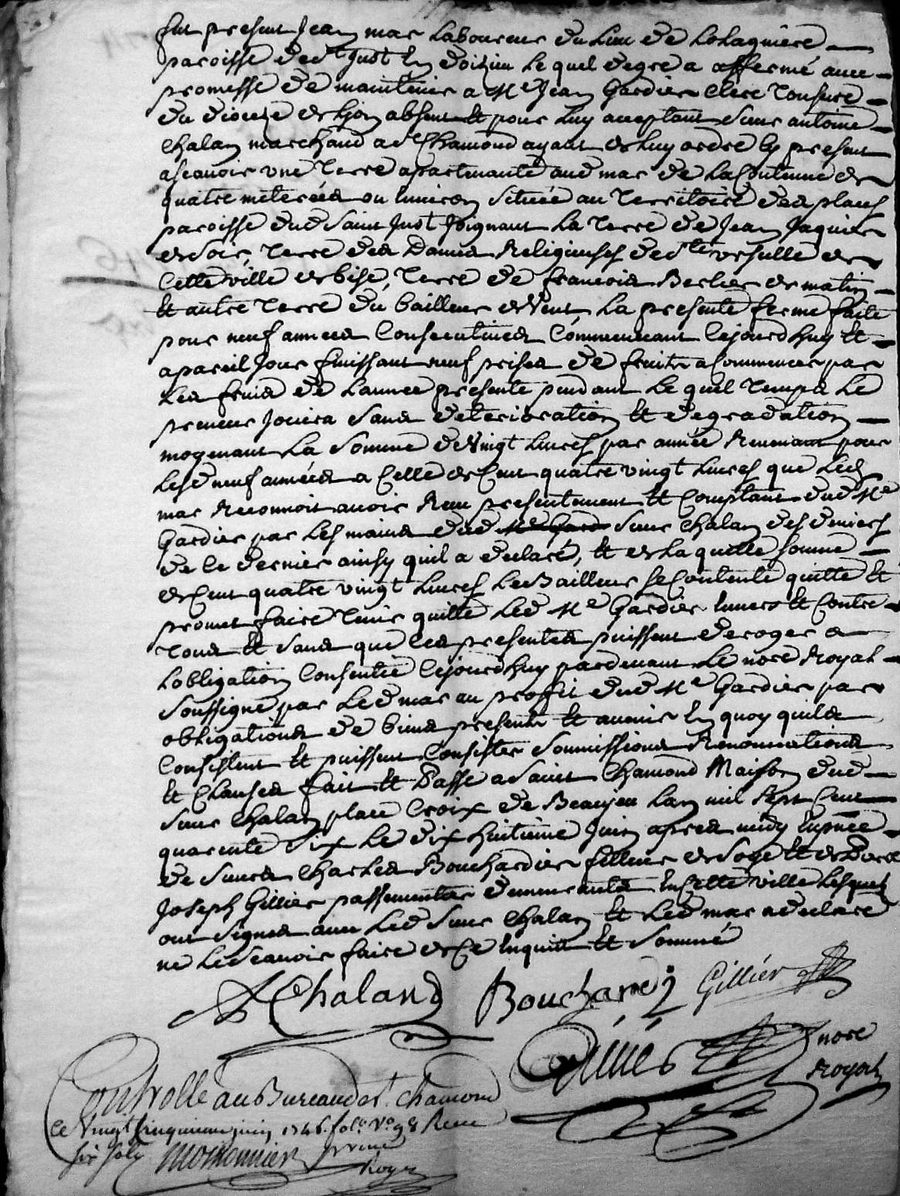 fut present Jean mar Laboureur du Lieu de Lolagnière
paroisse de St Just En doizieu Lequel degré a affermé avec
promesse de maintenir a Me Jean Gardier Clerc Tonsuré
du dioceze de Lyon absent et pour Luy acceptant Sieur antoine
Chalan marchand a St Chamond ayant de Luy ordre Cy present
ascavoir une Terre apartenante aud mar de La Contenue de
quatre meterées ou Environ Situéé au Territoire des places
paroisse dud Saint Just Joignant La Terre de Jean Jaquier
de Soir, Terre des Dames Religieuses de Ste Ursulle de
Cette ville de bise, Terre de francois Berlier de matin
et autre Terre du bailleur de Vent La presente ferme faite
pour neuf années Consecutives Commencant Cejourdhuy et
a pareil Jour finissant neuf prises de fruits a Commencer par
Les fruis de Lannee presente pendant Le quel Temps Le
preneur Jouira Sans deterioration et degradation
moyenant La Somme de Vingt Livres par année Revenant pour
Lesd neuf années a Celle de Cent quatre vingt Livres que Led
mar Reconnoit avoir Reeu presentement et Comptant dud Me
Gardier par Les mains dud Sieur Chalan des deniers
de Ce dernier ainsy quil a declaré, et de La quelle Somme
de Cent quatre vingt Livres Le Bailleur Se Contente quitte et
promet faire Tenir quitte Led Me Gardier Envers et Contre
Tous et Sans que Ces presentes puissent deroger a
Lobligation Consentie Cejourdhuy pardevant Le nore Royal
Soussigné par Led mar au proffit dud Me Gardier par
obligations de biens presents et avenir En quoy quils
Consistent et puissent Consister Soumissions Renonciations
et Clauses fait et Passé a Saint Chamond Maison dud
Sieur Chalan place Croix de Beaujeu Lan mil Sept Cent
quarente Six Le dix huitieme Juin apres midy En pnce
de Sieurs Charles Bouchardier filleur de Soye et de
Joseph Gillier passementier demeurants En Cette ville Lesquels
ont Signés avec Led Sieur Chalan et Led mar a declaré
ne Le Scavoir faire de Ce Enquis et Sommé
A Chaland Bouchard Gillier
nore
Royal
Controllé au Bureau de St. Chamond
Ce Vingt Cinquieme juin 1746. fol. Vo 98 Reeu
Six Sols